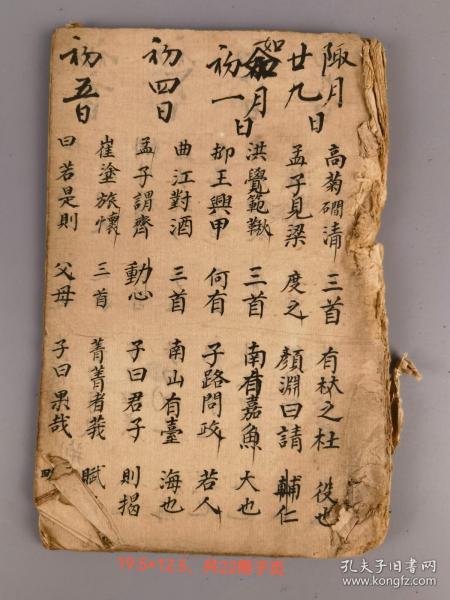 陬月 高菊磵清 三首 有杕之杜 役也
廿九日 孟子見梁 度之 顏淵曰請 輔仁
如月 洪覺範鞦 三首 南有嘉魚 大也
初一日 抑王興甲 何有 子路問政 若人
曲江對酒 三首 南山有臺 海也
初四日 孟子謂齊 動心 子曰君子 則揭
崔塗旅懷 三首 菁菁者莪 賦
初五日 曰若是則 父母 子曰果哉
19.5*12.5、共22筒子页
孔夫子旧书网
www.kongfz.com